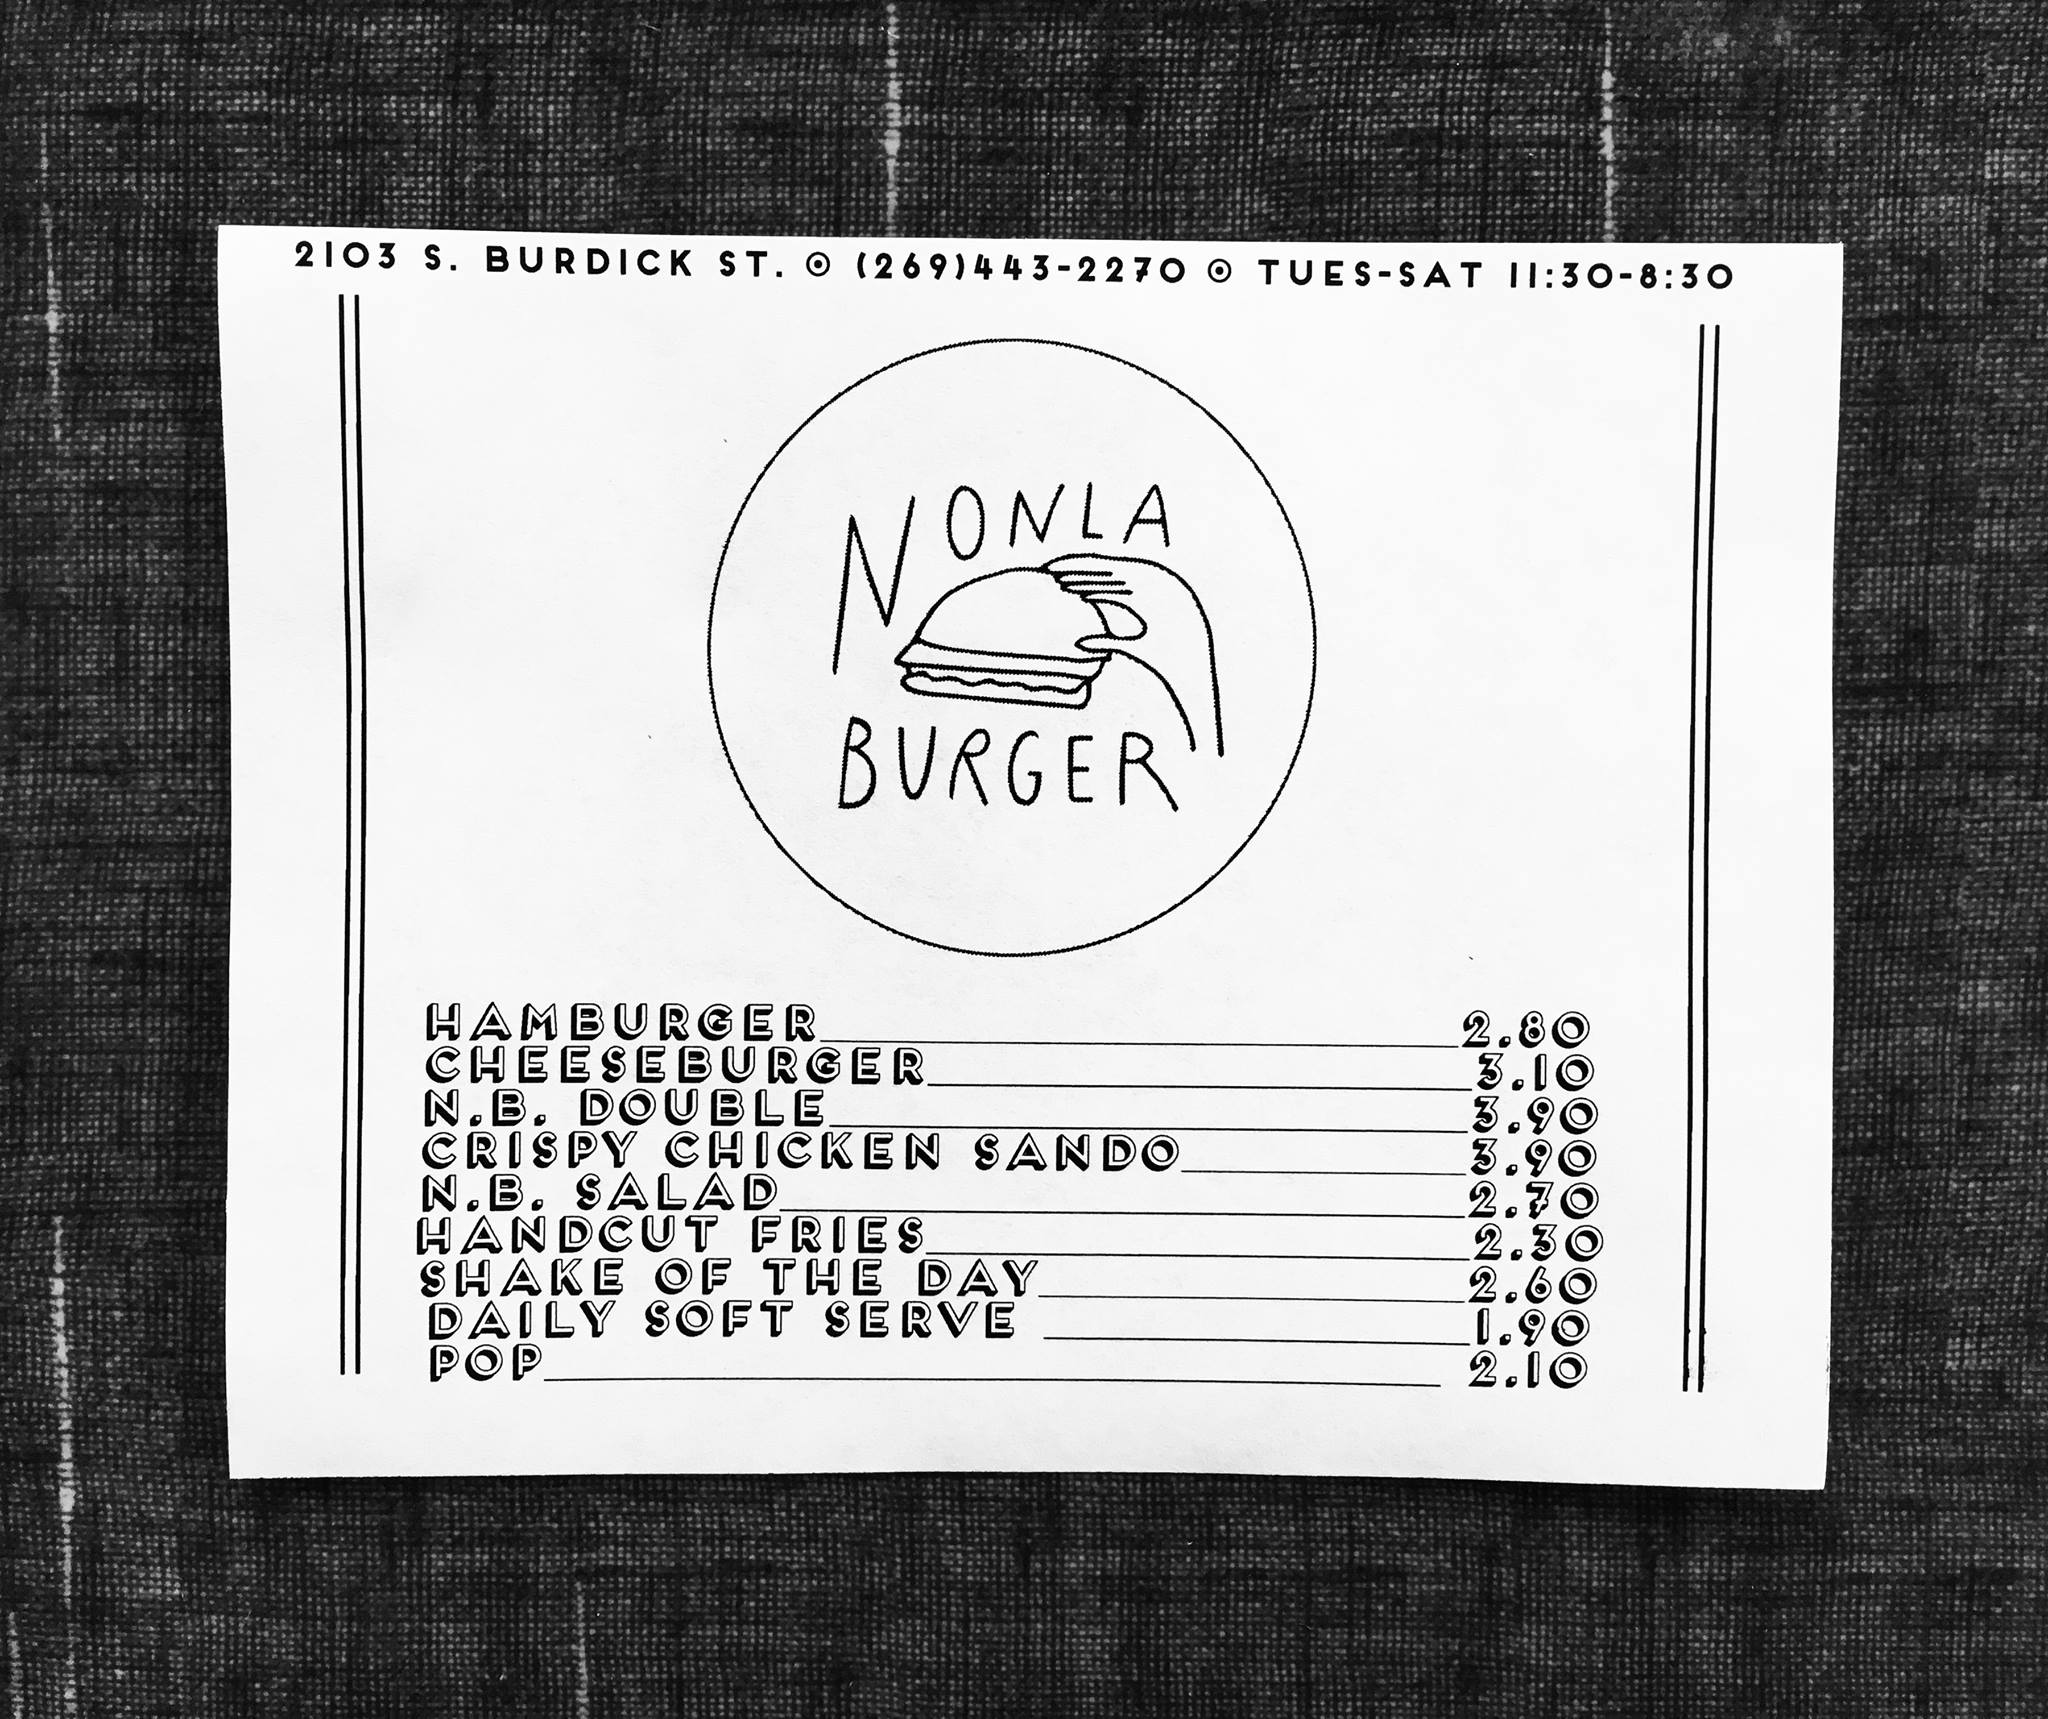 2103 S. BURDICK ST. ◉ (269)443-2270 ◉ TUES-SAT 11:30-8:30
NONLA
BURGER
HAMBURGER 2.80
CHEESEBURGER 3.10
N.B. DOUBLE 3.90
CRISPY CHICKEN SANDO 3.90
N.B. SALAD 2.70
HANDCUT FRIES 2.30
SHAKE OF THE DAY 2.60
DAILY SOFT SERVE 1.90
POP 2.10